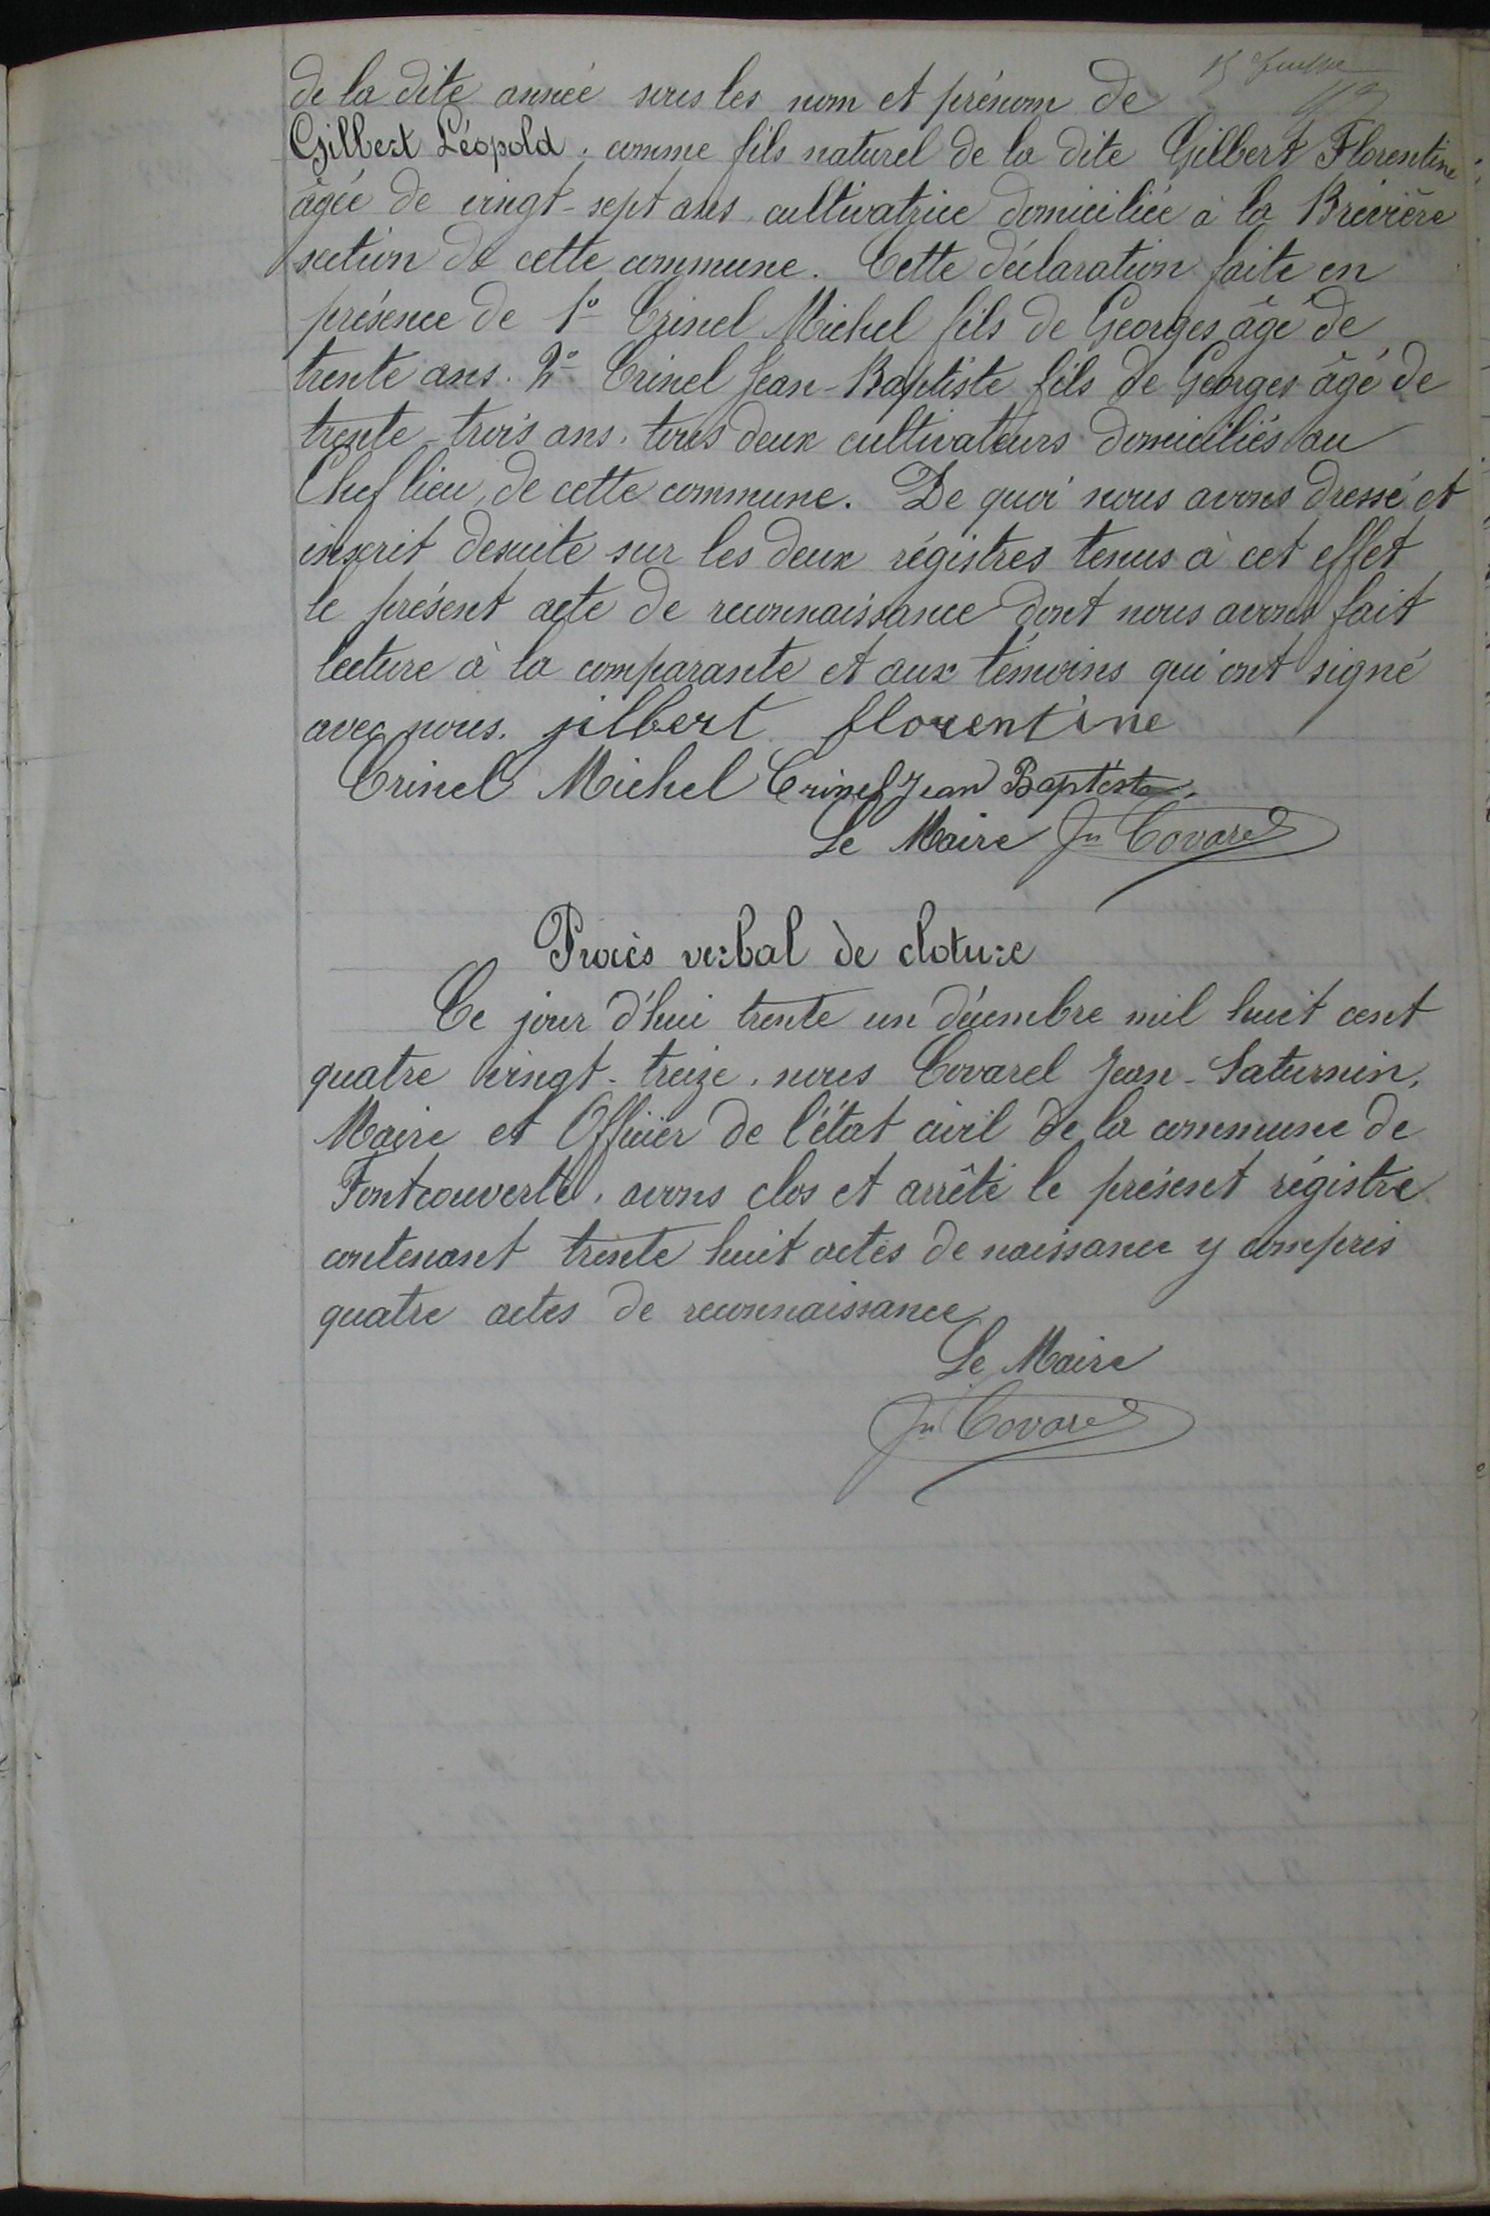 de la dite année sous les nom et prénom de
Gilbert Léopold, comme fils naturel de la dite Gilbert Florentine
âgée de vingt-sept ans cultivatrice domiciliée à la Brévière
section de cette commune. Cette déclaration faite en
présence de 1º Crinel Michel fils de Georges âgé de
trente ans. 2º Crinel Jean-Baptiste fils de Georges âgé de
trente-trois ans, tous deux cultivateurs domiciliés au
Chef lieu, de cette commune. De quoi nous avons dressé et
inscrit desuite sur les deux régistres tenus à cet effet
le présent acte de reconnaissance dont nous avons fait
lecture à la comparante et aux témoins qui ont signé
avec nous. gilbert florentine
Crinel Michel Crinel Jean Baptiste
Le Maire Jn Covarel
Procès verbal de cloture
Ce jour d'hui trente un décembre mil huit cent
quatre vingt-treize, nous Covarel Jean-Saturnin,
Maire et Officier de l'état civil de la commune de
Fontcouverte, avons clos et arrêté le présent régistre
contenant trente huit actes de naissance y compris
quatre actes de reconnaissance
Le Maire
Jn Covarel